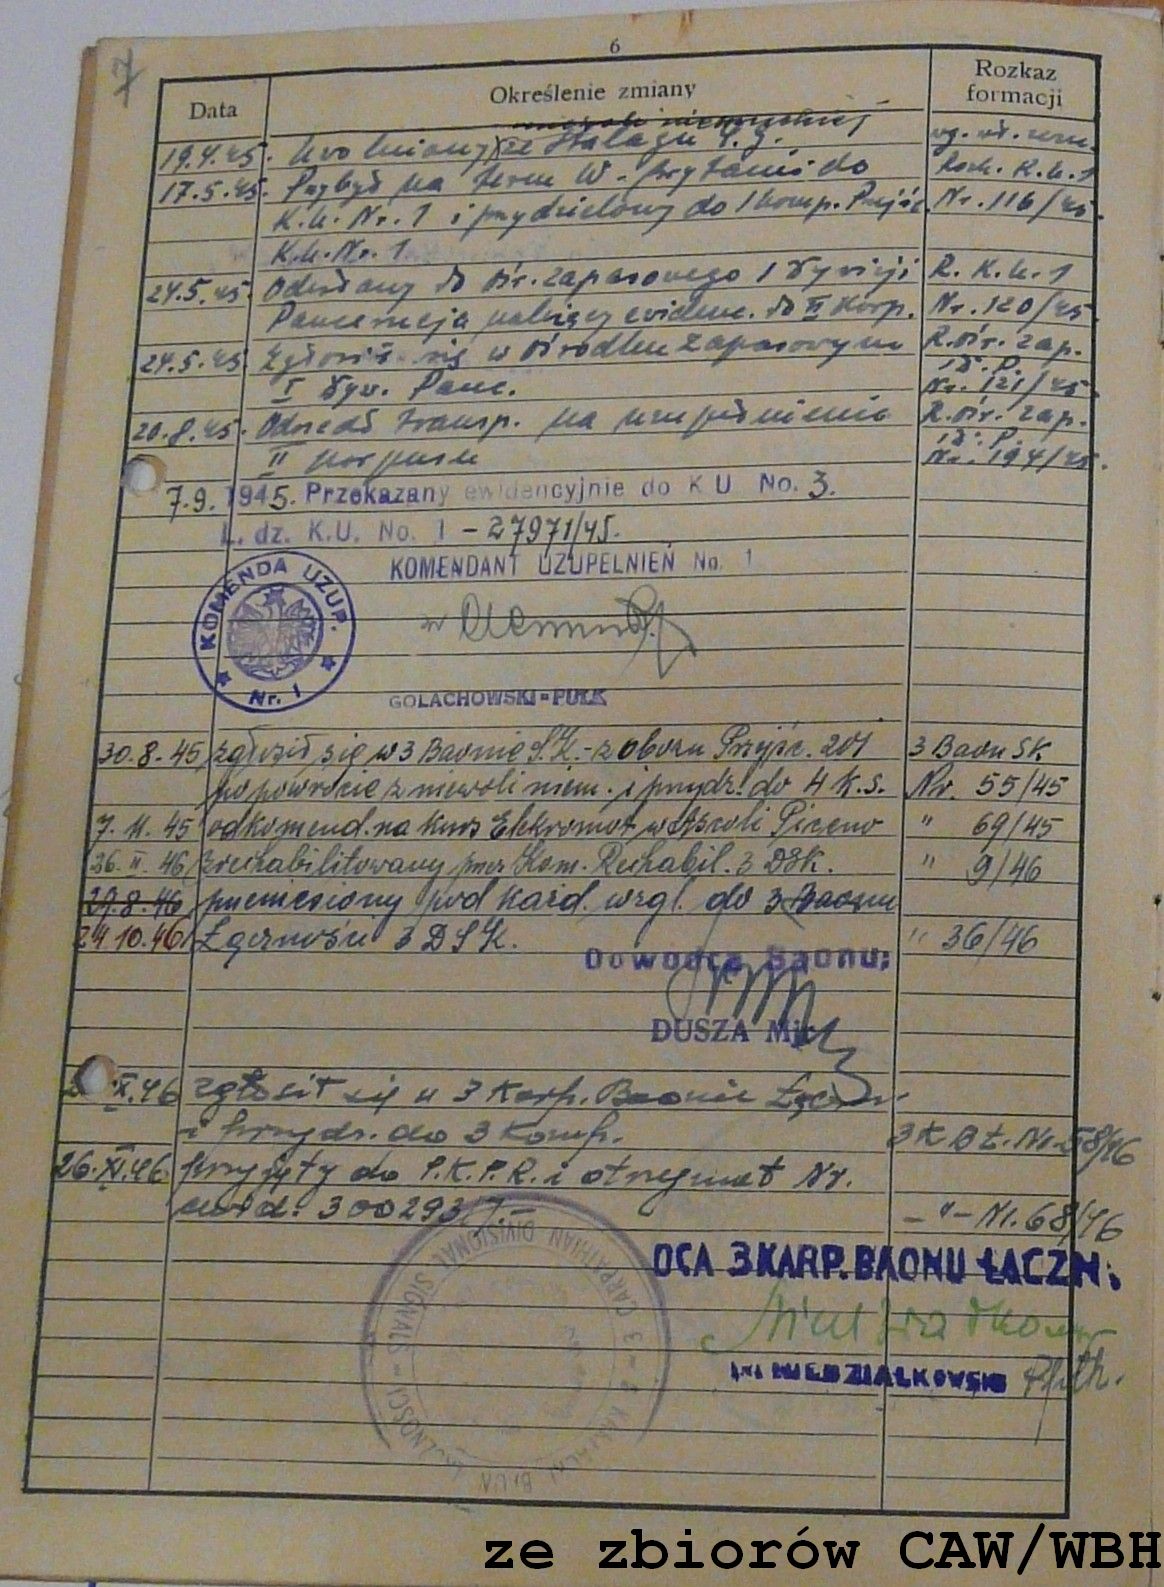 7
6
Data Określenie zmiany Rozkaz formacji
niemieckiej
19.4.45. Uwolniony ze Stalagu
17.5.45. Przybył na teren W. Brytanii do R.K.U.1
K.U. Nr. 1 i przydzielony do 1 komp. Przyjść. Nr. 116/45.
K.U. Nr. 1
24.5.45. Odesłany do Ośr. zapasowego 1 Dywizji R. K.U. 1
Pancernej należący evidenc. do II Korp. Nr. 120/45.
24.5.45. Zgłosił się w Ośrodku Zapasowym R. Ośr. zap.
I Dyw. Panc. 1 D. P. Nr. 121/45.
20.8.45. Odszedł transp. na uzupełnienie R. Ośr. zap.
II Korpusu 1 D. P. Nr. 194/45.
7.9.1945. Przekazany ewidencyjnie do K U No. 3.
L. dz. K.U. No. 1 - 27971/45.
KOMENDANT UZUPEŁNIEŃ No. 1
KOMENDA UZUP. Nr. 1
GOLACHOWSKI-PUŁK
30.8.45 zgłosił się w 3 Baonie S.K. - z obozu Przyjść. 201 3 Baon SK
po powrocie z niewoli niem. i przydz. do 4 K.S. Nr. 55/45
7.11.45 odkomend. na kurs w Ascoli Piceno " 69/45
26.II.46 zrehabilitowany przez Kom. Rehabil. 3 DSK. " 9/46
29.8.46 przeniesiony pod każd. wzgl. do 3 Baonu
24.10.46 Łączności 3 DSK. " 36/46
Dowódca Baonu:
DUSZA Mjr.
XI.46 zgłosił się w 3 Karp. Baonie Łączn.
i przydz. do 3 Komp. 3 K B Ł. Nr. 58/46
26.XI.46 przyjęty do P.K.P.R. i otrzymał Nr.
ewid: 300293/7. - " - Nr. 68/46
3 CARPATHIAN DIVISIONAL SIGNALS
DCA 3 KARP. BAONU ŁĄCZN:
Niedziałkowski
NIEDZIAŁKOWSKI Ppłk.
ze zbiorów CAW/WBH